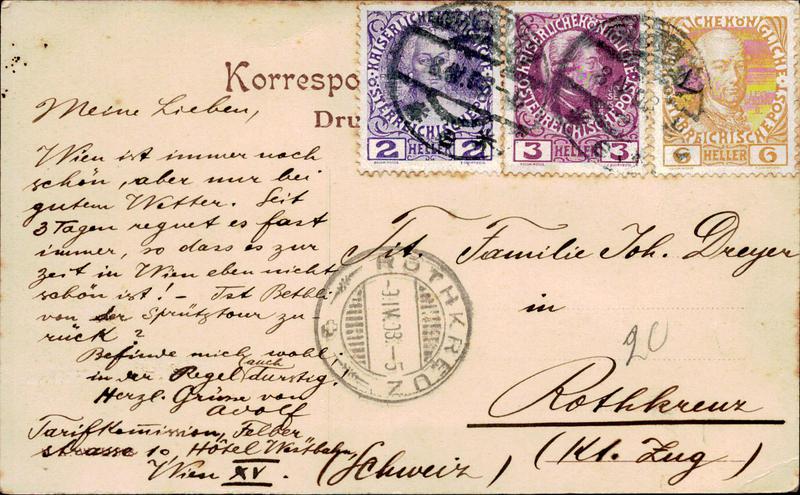 Korrespo
Dru
KAISERLICHEKÖNIGLICHE
ÖSTERREICHISCHE POST
2 HELLER 2
KAISERLICHEKÖNIGLICHE
ÖSTERREICHISCHEPOST
3 HELLER 3
REICHISCHE POST
6 HELLER 6
Meine Lieben,
Wien ist immer noch
schön, aber nur bei
gutem Wetter. Seit
3 Tagen regnet es fast
immer, so dass es zur
zeit in Wien eben nicht
schön ist! – Ist Bethli
von der Sprütztour zu
rück?
Befinde mich wohl,
in der Regel auch durstig.
Herzl. Grüsse von
Adolf
Tarifkommission, Felber
strasse 10, Hôtel Westbahn,
Wien XV.
Tit. Familie Joh. Dreyer
in
20
Rothkreuz
(Kt. Zug)
(Schweiz)
ROTHKREUZ
-9.IX.08.-5